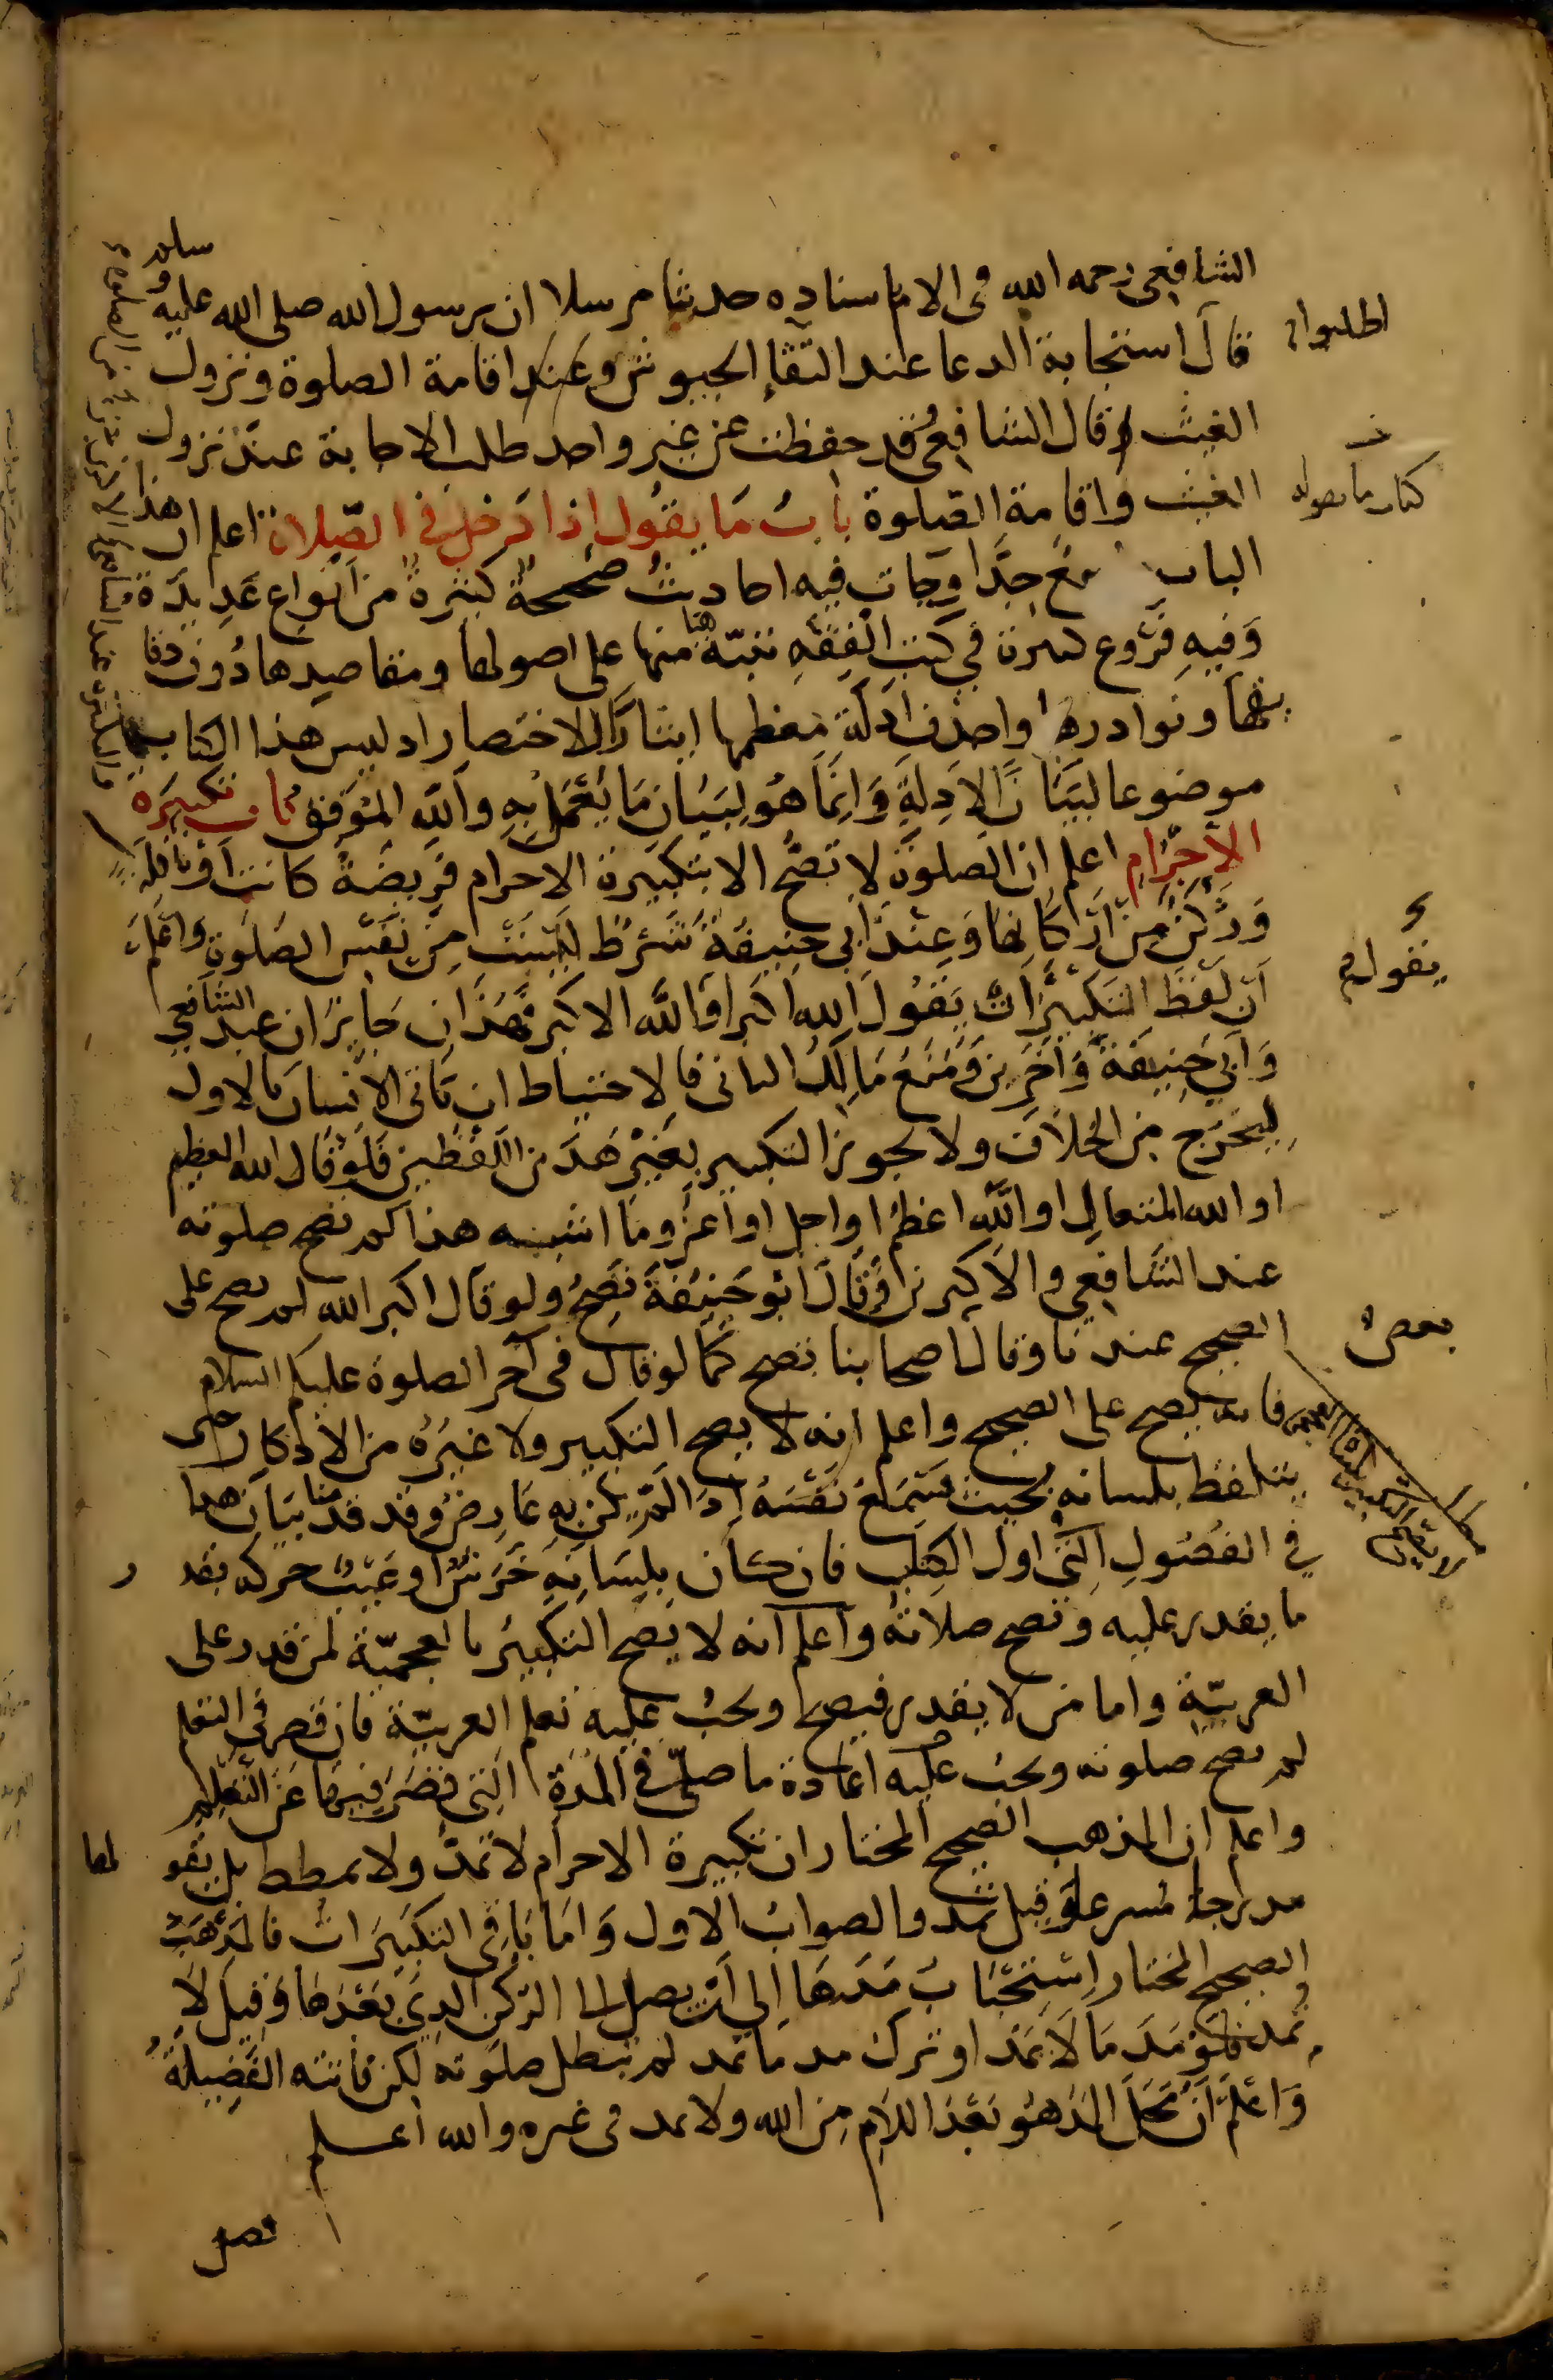 الشافعي رحمه الله في الام باسناده حديثا مرسلا ان رسول الله صلى الله عليه وسلم
اطلبوا
قال استجابة الدعا عند التقاء الجيوش وعند اقامة الصلوة ونزول
الغيث وقال الشافعي قد حفظت عن غير واحد طلب الاجابة عند نزول
كتاب ما يقوله
الغيث واقامة الصلوة باب ما يقول اذا دخل في الصلاة اعلم ان هذا
الباب واسع جدا وجات فيه احاديث صحيحة كثيرة من انواع عديدة
وفيه فروع كثيرة في كتب الفقه ننبه هنا منها على اصولها ومقاصدها دون دقا
يقها ونوادرها واحذف ادلة معظمها ايثارا للاختصار اذ ليس هذا الكتاب
موضوعا لبيان الادلة وانما هو لبيان ما يعمل به والله الموفق باب تكبيرة
الاحرام اعلم ان الصلوة لا تصح الا بتكبيرة الاحرام فريضة كانت او نافلة
وركن من اركانها وعند ابي حنيفة شرط ليست من نفس الصلوة واعلم
يقول
ان لفظ التكبير ان يقول الله اكبر او الله الاكبر فهذان جايزان عند الشافعي
وابي حنيفة واخرين ومنع مالك الثاني فالاحتياط ان ياتي الانسان بالاول
ليخرج من الخلاف ولا يجوز التكبير بغير هذين اللفظين فلو قال الله العظيم
او الله المتعال او الله اعظم او اجل او اعز وما اشبه هذا لم تصح صلوته
عند الشافعي والاكثرين وقال ابو حنيفة تصح ولو قال اكبر الله لم تصح على
بعض
الصحيح عندنا وقال اصحابنا تصح كما لو قال في آخر الصلوة عليكم السلام
فانه يصح على الصحيح واعلم انه لا يصح التكبير ولا غيره من الاذكار حتى
يتلفظ بلسانه بحيث يسمع نفسه اذا لم يكن به عارض وقد قدمنا بيان هذا
في الفصول التي اول الكتاب فان كان بلسانه خرس او عيب حركه بقد
ر
ما يقدر عليه وتصح صلاته واعلم انه لا يصح التكبير بالعجمية لمن قدر على
العربية واما من لا يقدر فيصح ويجب عليه تعلم العربية فان قصر في التعلم
لم تصح صلوته ويجب عليه اعادة ما صلى في المدة التي قصر فيها عن التعلم
واعلم ان المذهب الصحيح المختار ان تكبيرة الاحرام لا تمد ولا تمطط بل يقو
لها
مدرجا مسرعا وقيل تمد والصواب الاول واما باقي التكبيرات فالمذهب
الصحيح المختار استحباب مدها الى ان يصل الى الركن الذي بعدها وقيل لا
تمد فلو مد ما لا يمد او ترك مد ما يمد لم تبطل صلوته لكن فاتته الفضيلة
واعلم ان محل المد هو بعد اللام من الله ولا يمد في غيره والله اعلم
فصل